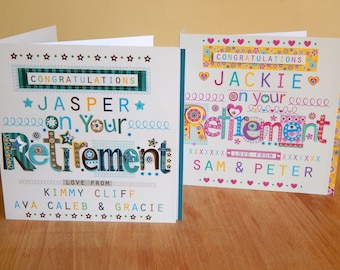 CONGRATULATIONS
JASPER
on Your
Retirement
LOVE FROM
KIMMY CLIFF
AVA CALEB & GRACIE
CONGRATULATIONS
JACKIE
on your
Retirement
LOVE FROM
XXXXXXX SAM & PETER XXXXXXX